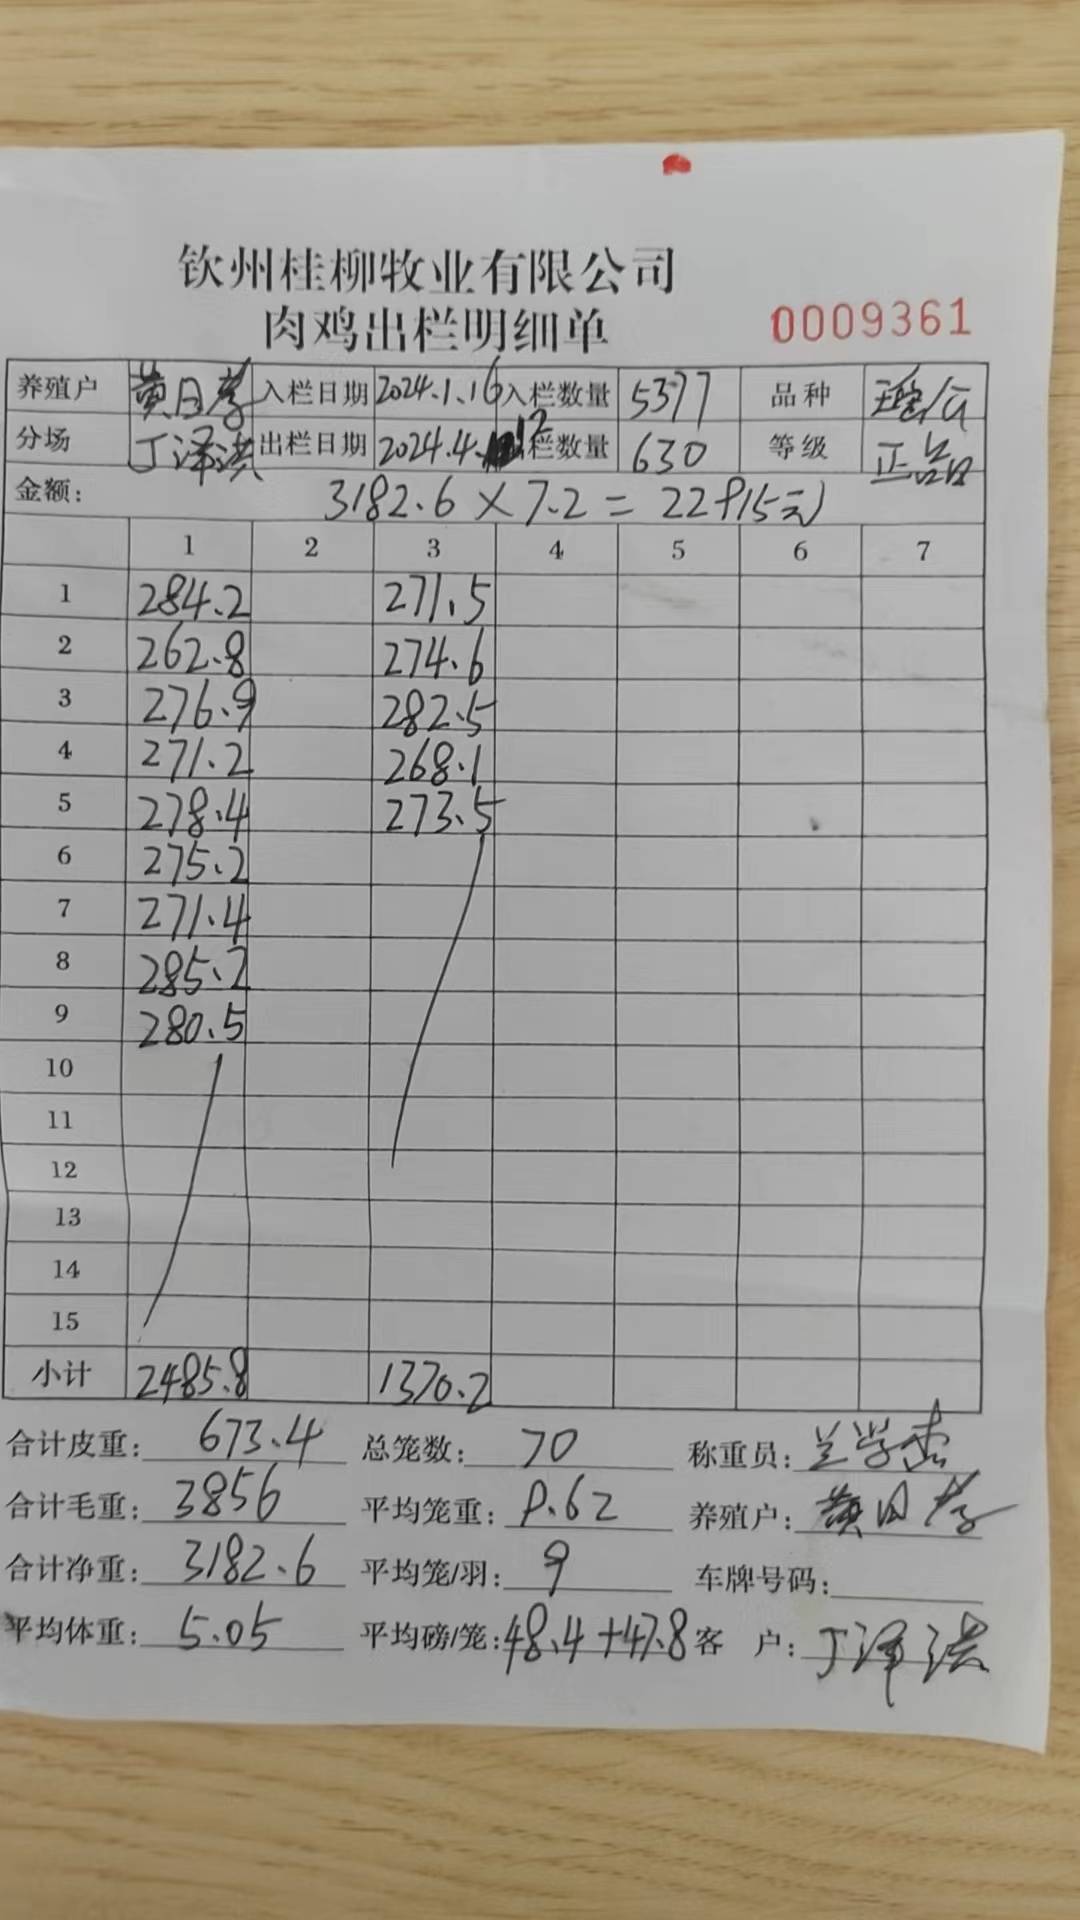 钦州桂柳牧业有限公司
肉鸡出栏明细单
0009361
养殖户 黄日 入栏日期 2024.1.16 入栏数量 5377 品种 瑶
分场 丁泽洪 出栏日期 2024.4.12 栏数量 630 等级 正品
金额: 3182.6×7.2=22915元
1 2 3 4 5 6 7
1 284.2 271.5
2 262.8 274.6
3 276.9 282.5
4 271.2 268.1
5 278.4 273.5
6 275.2
7 271.4
8 285.2
9 280.5
10
11
12
13
14
15
小计 2485.8 1370.2
合计皮重: 673.4 总笼数: 70 称重员: 兰学
合计毛重: 3856 平均笼重: 9.62 养殖户: 黄日
合计净重: 3182.6 平均笼/羽: 9 车牌号码:
平均体重: 5.05 平均磅/笼: 48.4+47.8 客 户: 丁泽洪